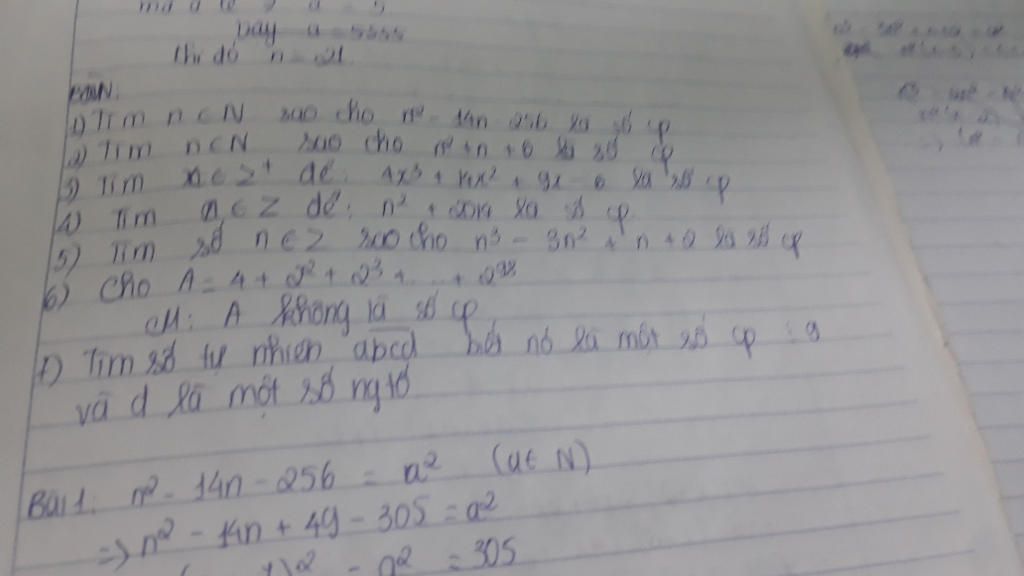 vậy a = 5555
thì đó n = 21
BTVN:
1) Tìm n ∈ N sao cho n² - 14n - 256 là số cp
2) Tìm n ∈ N sao cho n² + n + 6 là số cp
3) Tìm x ∈ Z⁺ để: 4x³ + 14x² + 9x - 6 là số cp
4) Tìm n ∈ Z để: n² + 2014 là số cp
5) Tìm số n ∈ Z sao cho n³ - 3n² + n + 2 là số cp
6) Cho A = 4 + 2² + 2³ + ... + 2⁹⁸
CM: A không là số cp
7) Tìm số tự nhiên abcd biết nó là một số cp ⋮ 9
và d là một số ng tố
Bài 1: n² - 14n - 256 = a² (a ∈ N)
=> n² - 14n + 49 - 305 = a²
)² - a² = 305